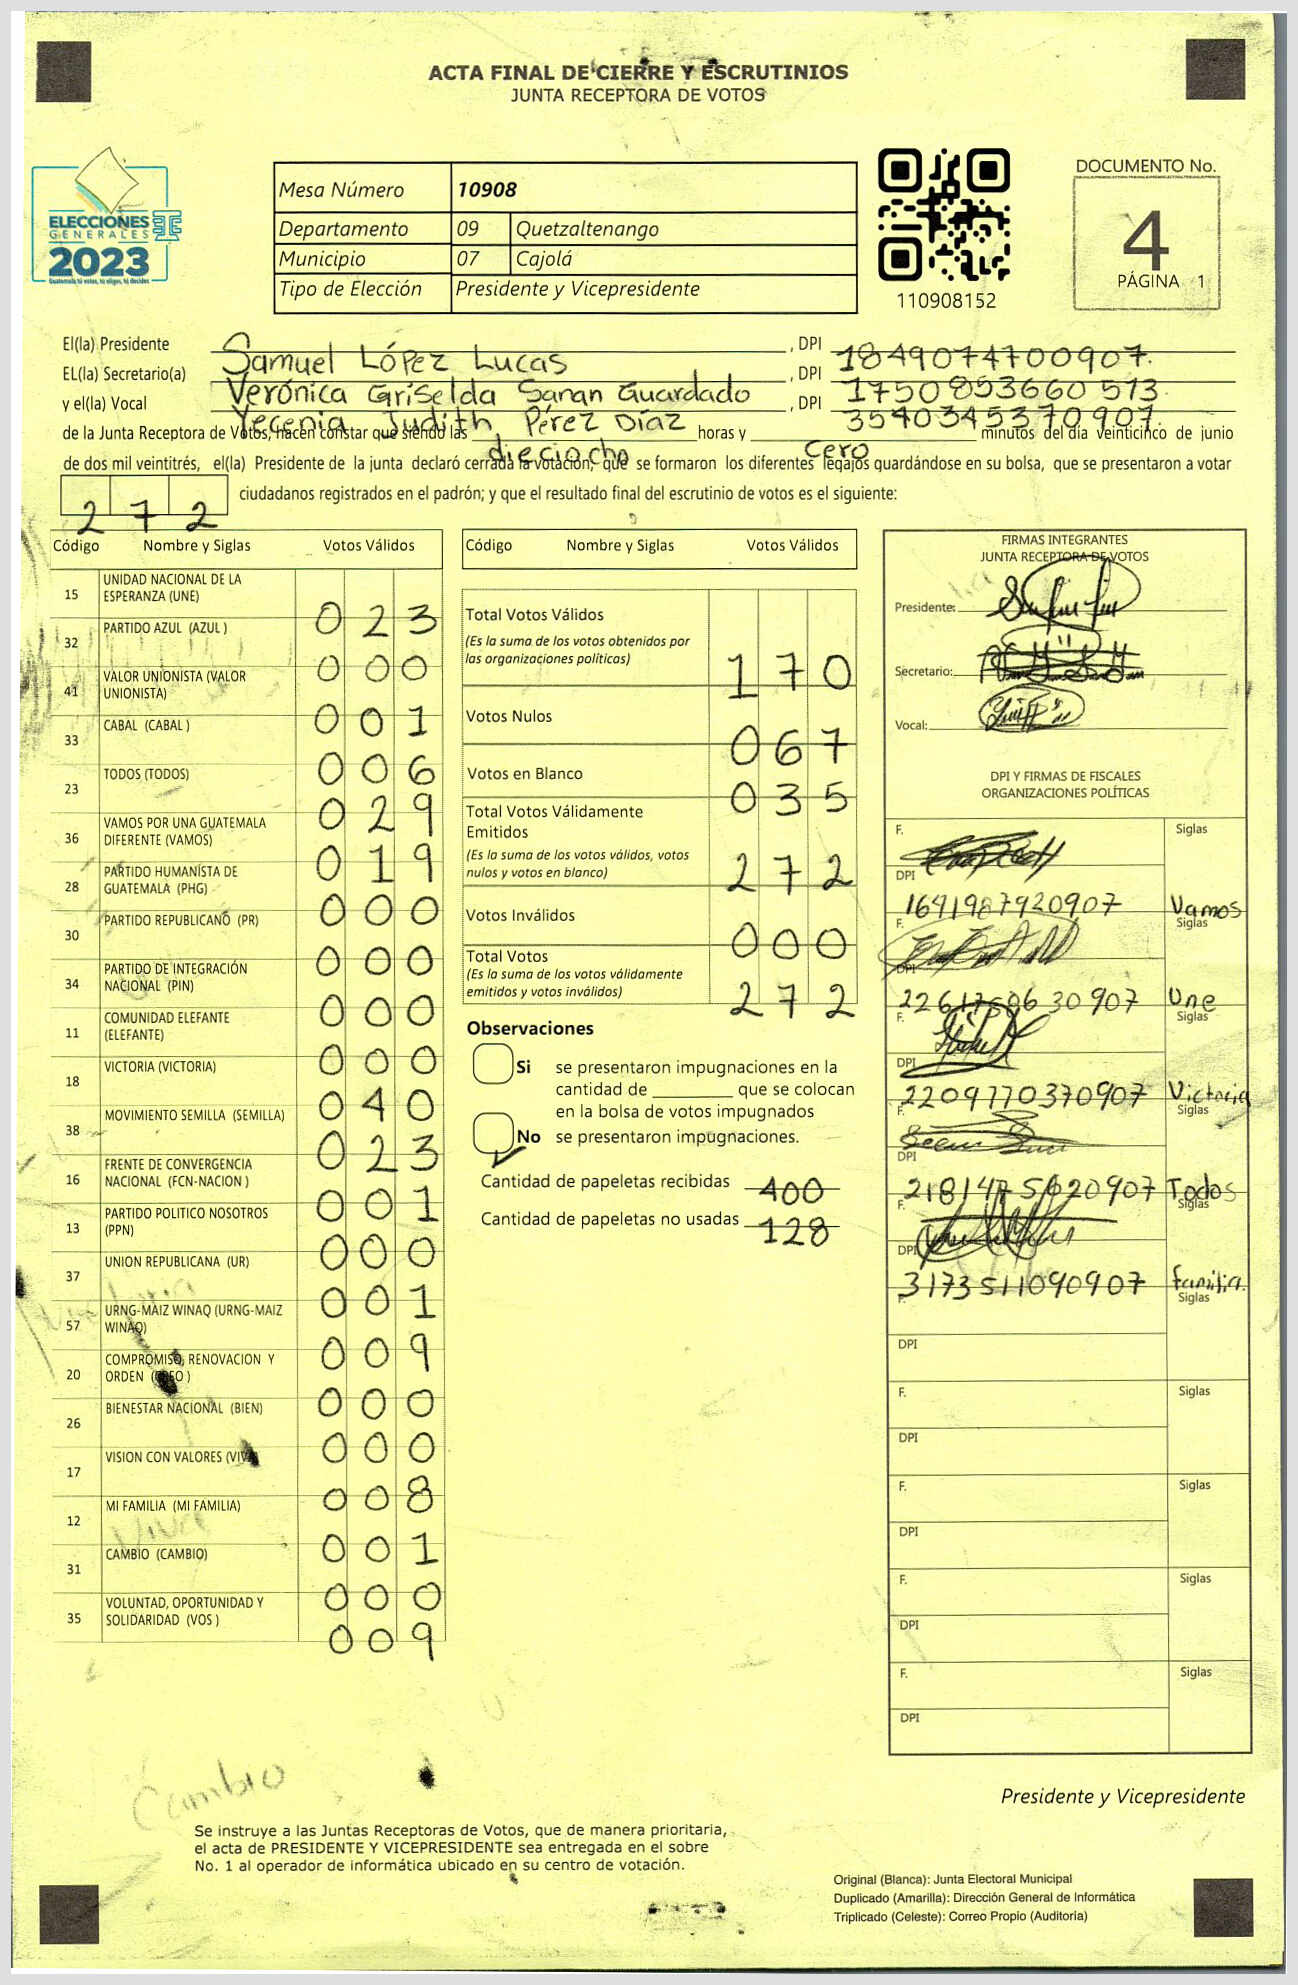 ACTA FINAL DE CIERRE Y ESCRUTINIOS
JUNTA RECEPTORA DE VOTOS
ELECCIONES
GENERALES
2023
Guatemala tú votas, tú eliges, tú decides
Mesa Número 10908
Departamento 09 Quetzaltenango
Municipio 07 Cajolá
Tipo de Elección Presidente y Vicepresidente
110908152
DOCUMENTO No.
4
PÁGINA 1
El(la) Presidente Samuel López Lucas, DPI 1849074700907.
EL(la) Secretario(a) Verónica Griselda Sanan Guardado, DPI 1750853660513
y el(la) Vocal Yecenia Judith Pérez Díaz, DPI 3540345370907.
de la Junta Receptora de Votos, hacen constar que siendo las dieciocho horas y cero minutos del día veinticinco de junio
de dos mil veintitrés, el(la) Presidente de la junta declaró cerrada la votación, que se formaron los diferentes legajos guardándose en su bolsa, que se presentaron a votar
272 ciudadanos registrados en el padrón; y que el resultado final del escrutinio de votos es el siguiente:
Código Nombre y Siglas Votos Válidos
15 UNIDAD NACIONAL DE LA ESPERANZA (UNE) 023
32 PARTIDO AZUL (AZUL ) 000
41 VALOR UNIONISTA (VALOR UNIONISTA) 001
33 CABAL (CABAL ) 006
23 TODOS (TODOS) 029
36 VAMOS POR UNA GUATEMALA DIFERENTE (VAMOS) 019
28 PARTIDO HUMANISTA DE GUATEMALA (PHG) 000
30 PARTIDO REPUBLICANO (PR) 000
34 PARTIDO DE INTEGRACIÓN NACIONAL (PIN) 000
11 COMUNIDAD ELEFANTE (ELEFANTE) 000
18 VICTORIA (VICTORIA) 040
38 MOVIMIENTO SEMILLA (SEMILLA) 023
16 FRENTE DE CONVERGENCIA NACIONAL (FCN-NACION ) 001
13 PARTIDO POLITICO NOSOTROS (PPN) 000
37 UNION REPUBLICANA (UR) 001
57 URNG-MAIZ WINAQ (URNG-MAIZ WINAQ) 009
20 COMPROMISO, RENOVACION Y ORDEN 000
26 BIENESTAR NACIONAL (BIEN) 000
17 VISION CON VALORES 008
12 MI FAMILIA (MI FAMILIA) 001
31 CAMBIO (CAMBIO) 000
35 VOLUNTAD, OPORTUNIDAD Y SOLIDARIDAD (VOS ) 009
Código Nombre y Siglas Votos Válidos
Total Votos Válidos 170
(Es la suma de los votos obtenidos por
las organizaciones políticas)
Votos Nulos 067
Votos en Blanco 035
Total Votos Válidamente
Emitidos 272
(Es la suma de los votos válidos, votos
nulos y votos en blanco)
Votos Inválidos 000
Total Votos 272
(Es la suma de los votos válidamente
emitidos y votos inválidos)
Observaciones
Si se presentaron impugnaciones en la
cantidad de ________ que se colocan
en la bolsa de votos impugnados
No se presentaron impugnaciones.
Cantidad de papeletas recibidas 400
Cantidad de papeletas no usadas 128
FIRMAS INTEGRANTES
JUNTA RECEPTORA DE VOTOS
Presidente:
Secretario:
Vocal:
DPI Y FIRMAS DE FISCALES
ORGANIZACIONES POLÍTICAS
F. Siglas
DPI 1641987920907 Vamos
F. Siglas
DPI Une
F. Siglas
DPI 2209770370907 Victoria
F. Siglas
DPI Todos
F. Siglas
DPI 3173511090907 familia.
F. Siglas
DPI
F. Siglas
DPI
F. Siglas
DPI
F. Siglas
DPI
F. Siglas
DPI
Cambio
Presidente y Vicepresidente
Se instruye a las Juntas Receptoras de Votos, que de manera prioritaria,
el acta de PRESIDENTE Y VICEPRESIDENTE sea entregada en el sobre
No. 1 al operador de informática ubicado en su centro de votación.
Original (Blanca): Junta Electoral Municipal
Duplicado (Amarilla): Dirección General de Informática
Triplicado (Celeste): Correo Propio (Auditoría)